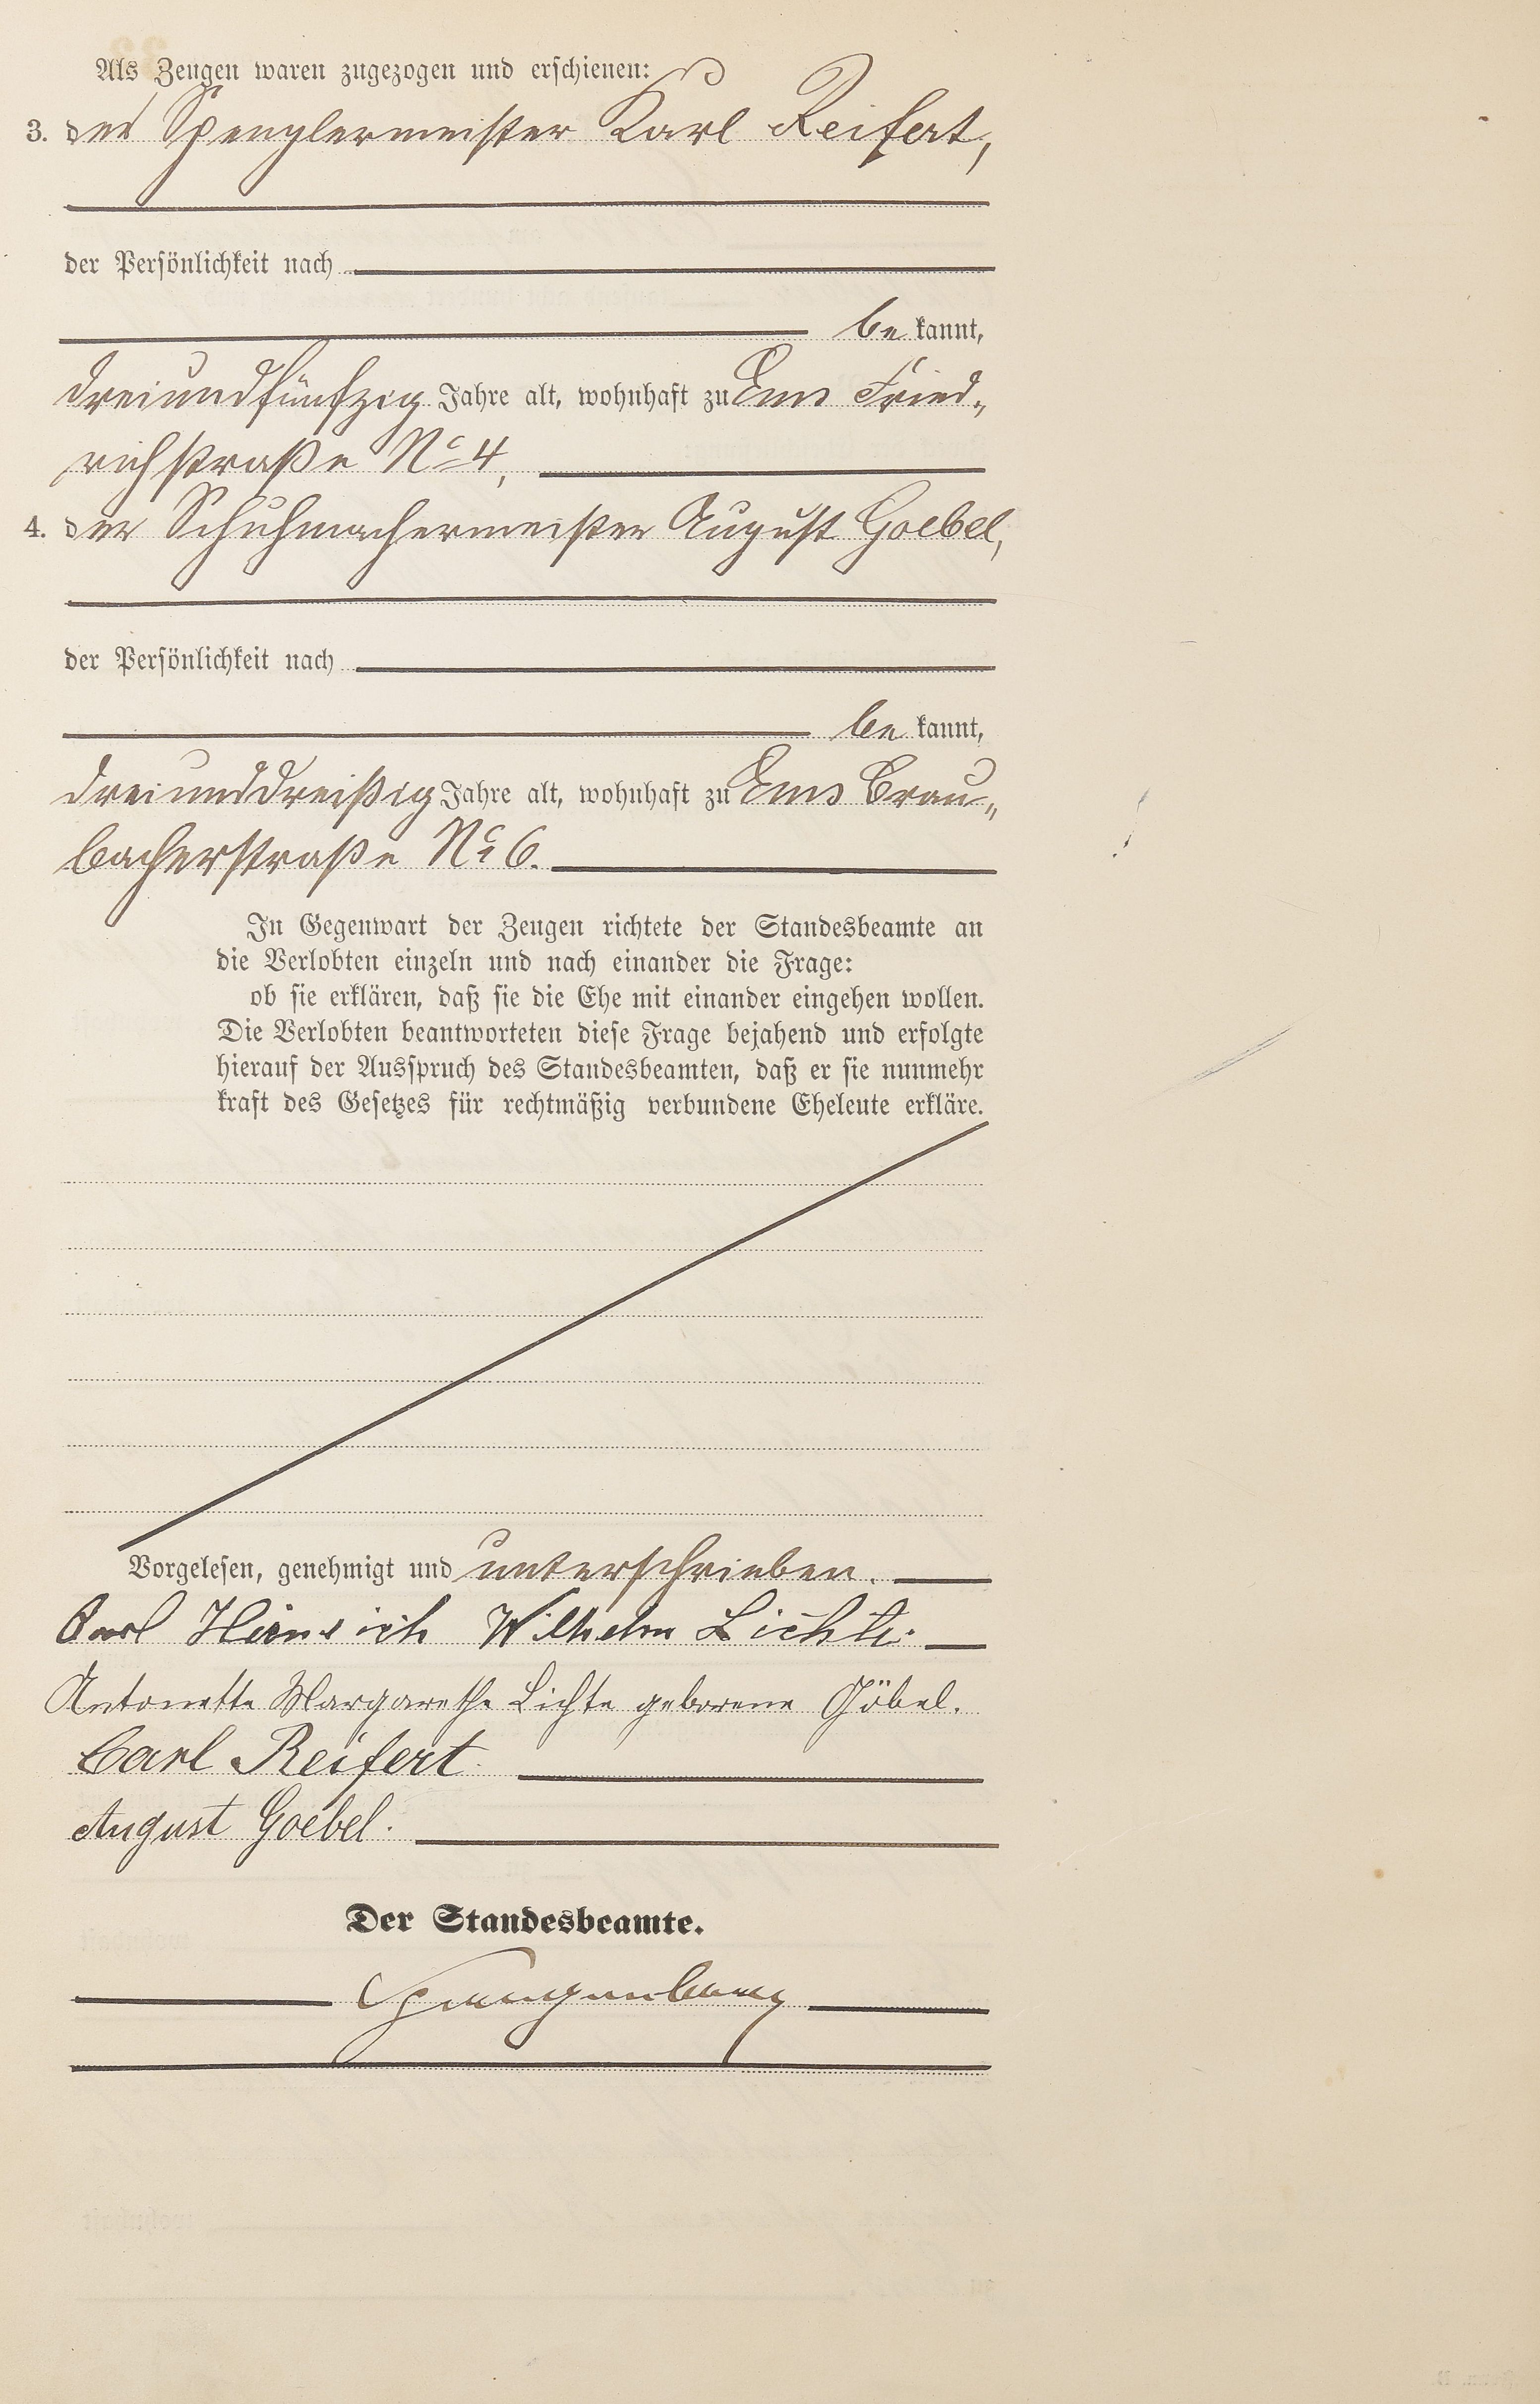 Als Zeugen waren zugezogen und erschienen:
3. der Spenglermeister Karl Reifert,
der Persönlichkeit nach
be kannt,
dreiundfünfzig Jahre alt, wohnhaft zu Ems Fried„
richstraße No 4,
4. der Schuhmachermeister August Goebel,
der Persönlichkeit nach
be kannt,
dreiunddreißig Jahre alt, wohnhaft zu Ems Brau„
bacherstraße No 6.
In Gegenwart der Zeugen richtete der Standesbeamte an
die Verlobten einzeln und nach einander die Frage:
ob sie erklären, daß sie die Ehe mit einander eingehen wollen.
Die Verlobten beantworteten diese Frage bejahend und erfolgte
hierauf der Ausspruch des Standesbeamten, daß er sie nunmehr
kraft des Gesetzes für rechtmäßig verbundene Eheleute erkläre.
Vorgelesen, genehmigt und unterschrieben.
Carl Heinrich Wilhelm Lichte.
Antonette Margarethe Lichte geborene Göbel.
Carl Reifert
August Goebel.
Der Standesbeamte.
Spangenberg